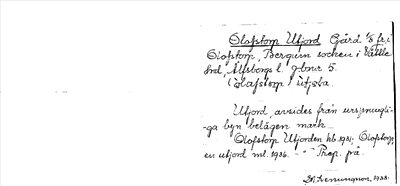 Olofstorp Utjord Gård 1/8 fr. i
Olofstorp, Bergum socken i Vättle
hrd, Älfsborgs l. jbnr 5.
(Olofstorp) utjoḷa.
Utjord, avsides från ursprungli-
ga byn belägen mark.
Olofstorp Utjorden hb 1931. Olofstorp,
en utjord ml. 1936. - " - Prep. på.
1938.